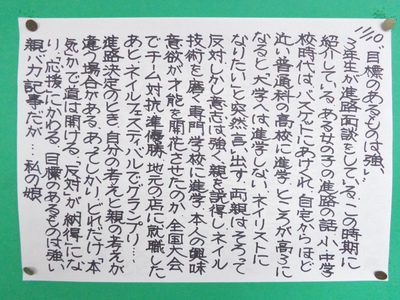 "目標のあるものは強い"
3年生が進路面談をしている。この時期に
紹介している、ある女の子の進路の話。小・中学
校時代は、バスケットにあけくれ、自宅からほど
近い普通科の高校に進学。ところが高3に
なると「大学へは進学しない。ネイリストに
なりたい」と突然言い出す。両親はそろって
反対。しかし意志は強く、親を説得しネイル
技術を磨く専門学校に進学。本人の興味
意欲が才能を開花させたのか、全国大会
でチーム対抗準優勝、地元の店に就職した
あと、ネイルフェスティバルでグランプリ…。
進路決定のとき、自分の考えと親の考えが
違う場合がある。あってしかり。どれだけ「本
気」かで道は開ける。「反対」が「納得」にな
り、「応援」にかわる。目標のあるものは強い
親バカ記事だが…私の娘